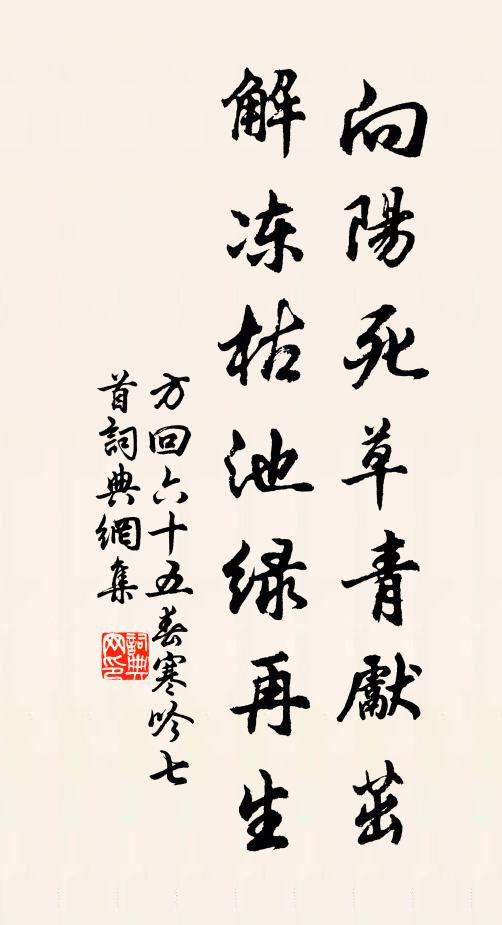 向陽死草青獻茁
解冻枯池緑再生
方回六十五春寒吟七
首詞典網集
詞典
网印